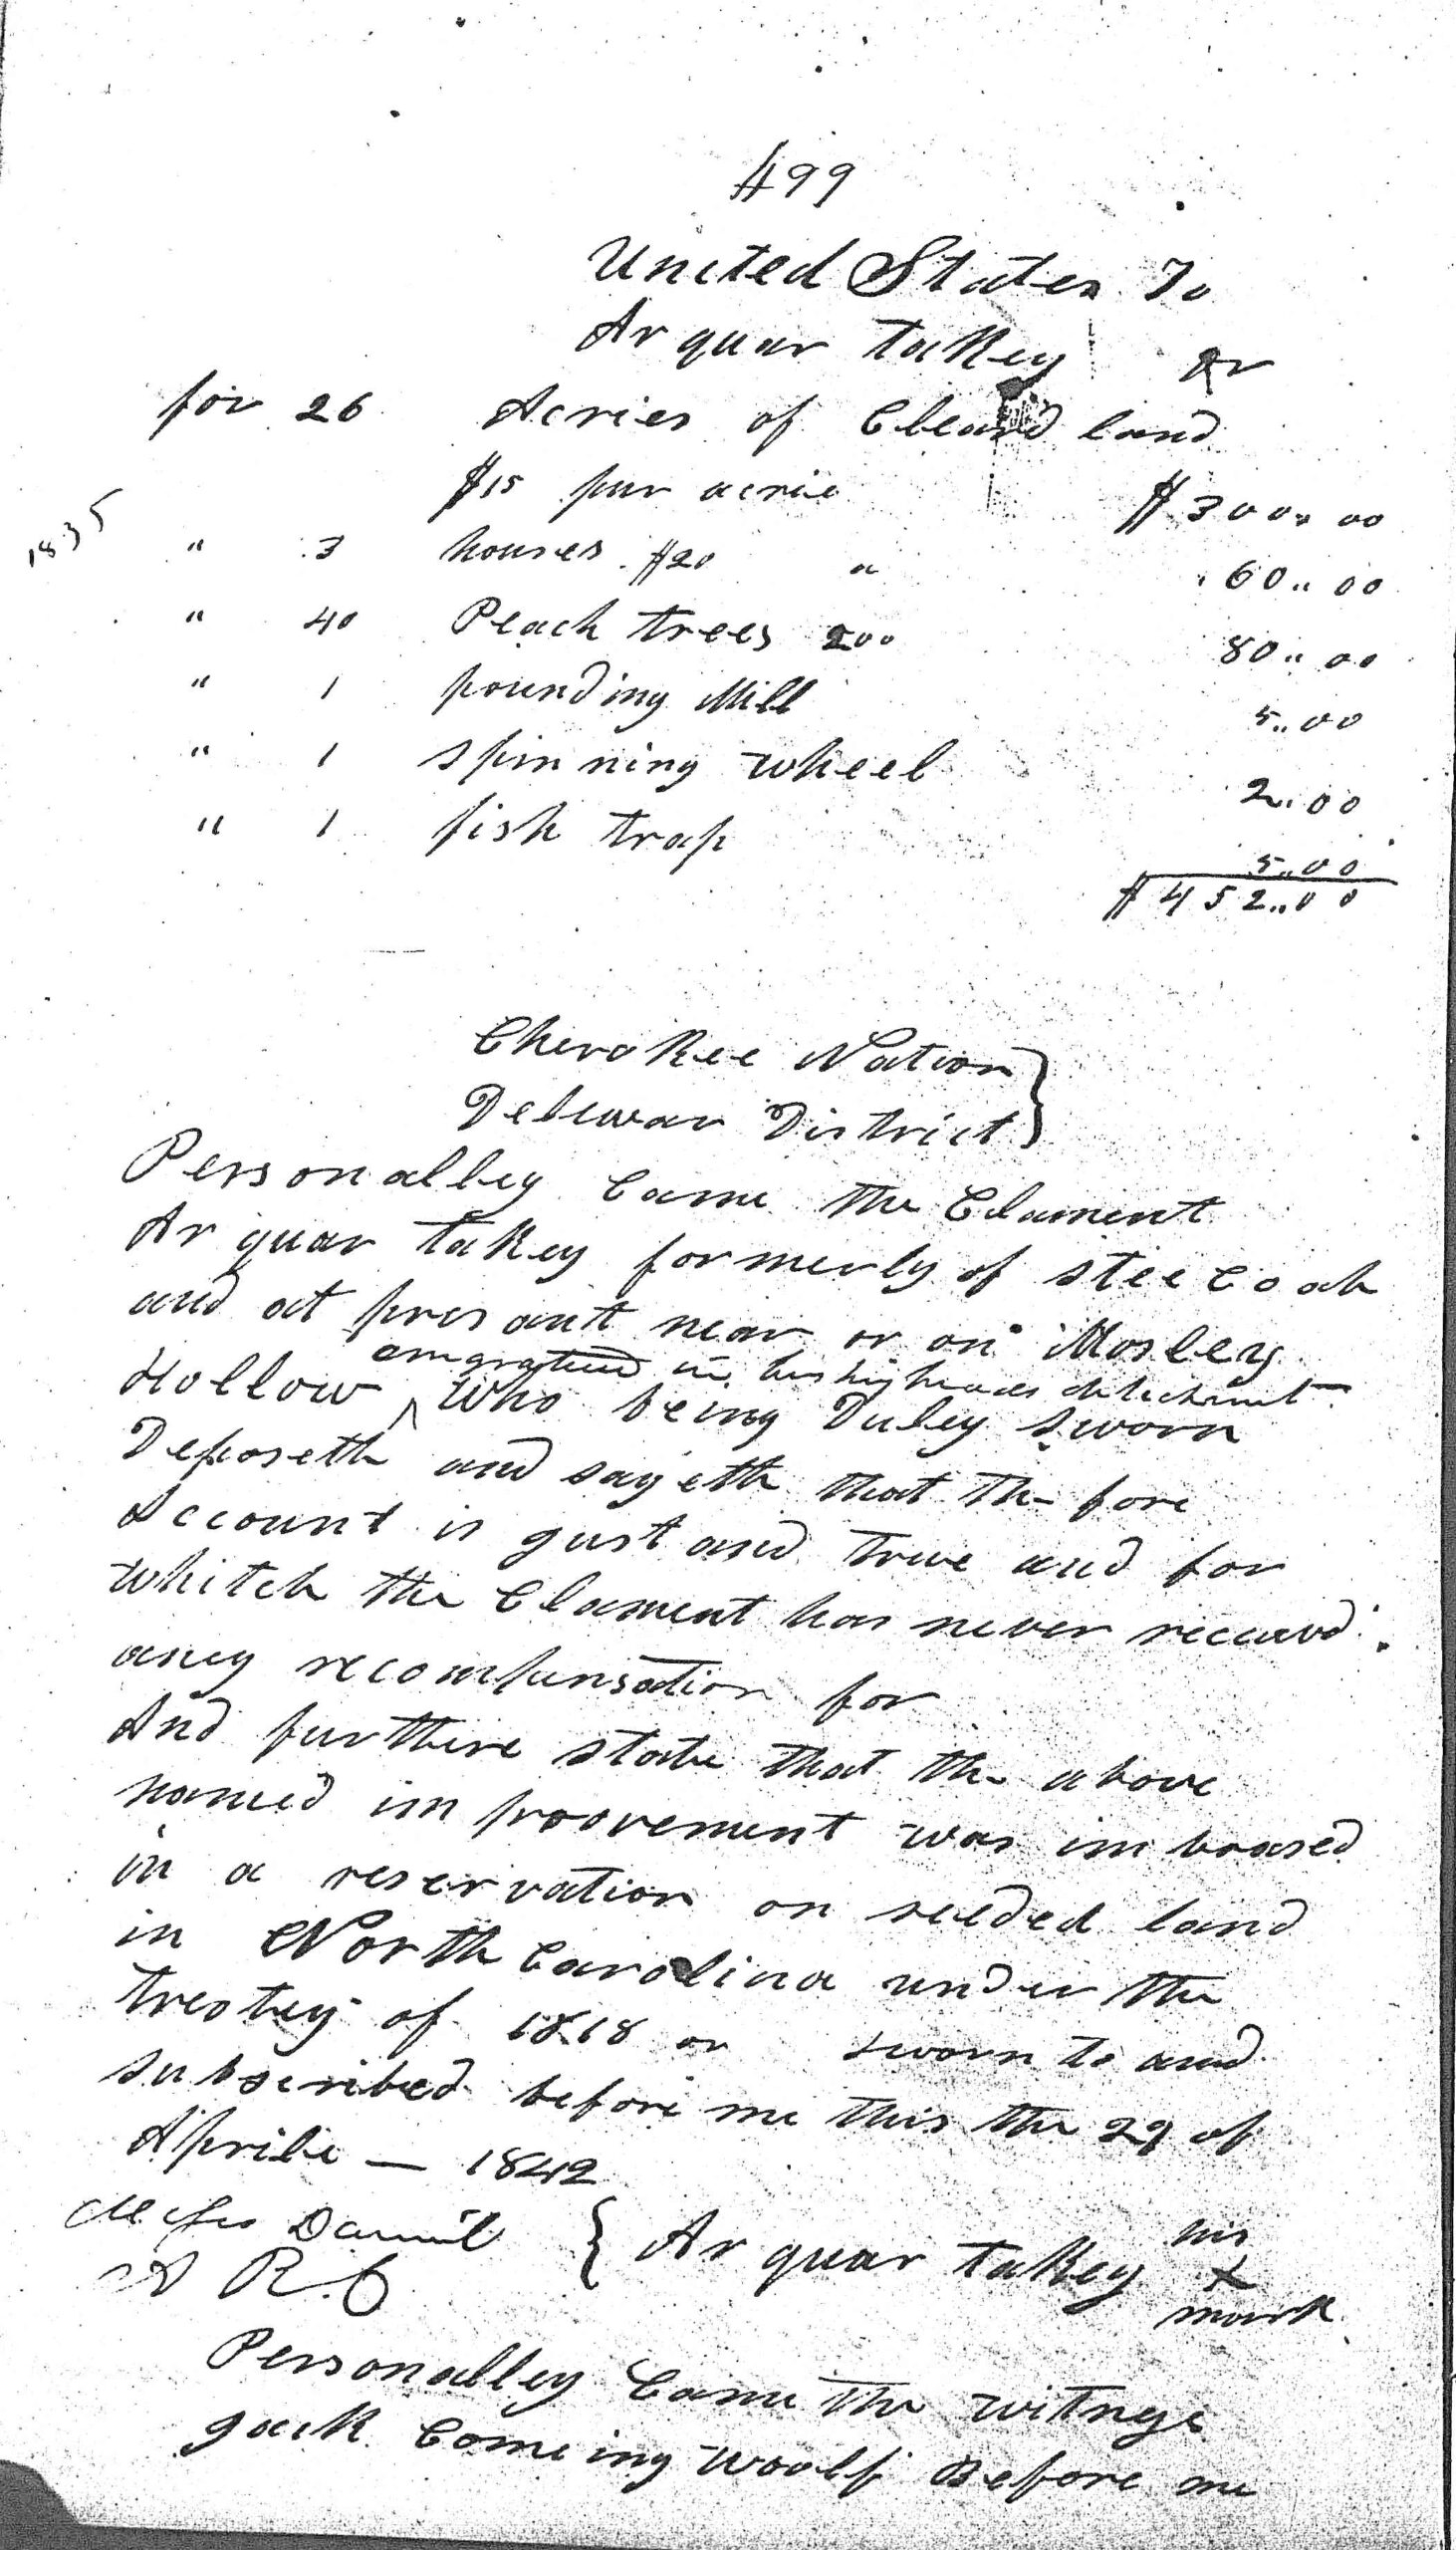 #99
United States To
Ar quar takey Dr
for 26 Acries of Cleard land
$15 pur acrie $300.. 00
1835
" 3 houses $20 " 60.. 00
" 40 Peach trees 200 80.. 00
" 1 pounding Mill 5.. 00
" 1 spinning wheel 2.. 00
" 1 fish trap 5.. 00
$452.. 00
Cherokee Nation }
Delewar District }
Personalley Came the Clament
Ar quar takey formerly of stee co ah
and at presant near or on Mosley
emgrated in detachment
Hollow ^ Who being Duley sworn
Deposeth and sayeth that the fore
Account is gust and true and for
whitch the Clament has never receievd
aney recompunsation for
And furthere state that the above
named improovement was imbrased
in a reservation on seeded land
in North Carolina under the
treatey of 1818 or sworn to and
subscribed before me this the 29 of
Aprile — 1842
Daniel { Ar quar takey his
A R. C x
mark
Personalley Came the witness
Jack Comeing Woolf Before me